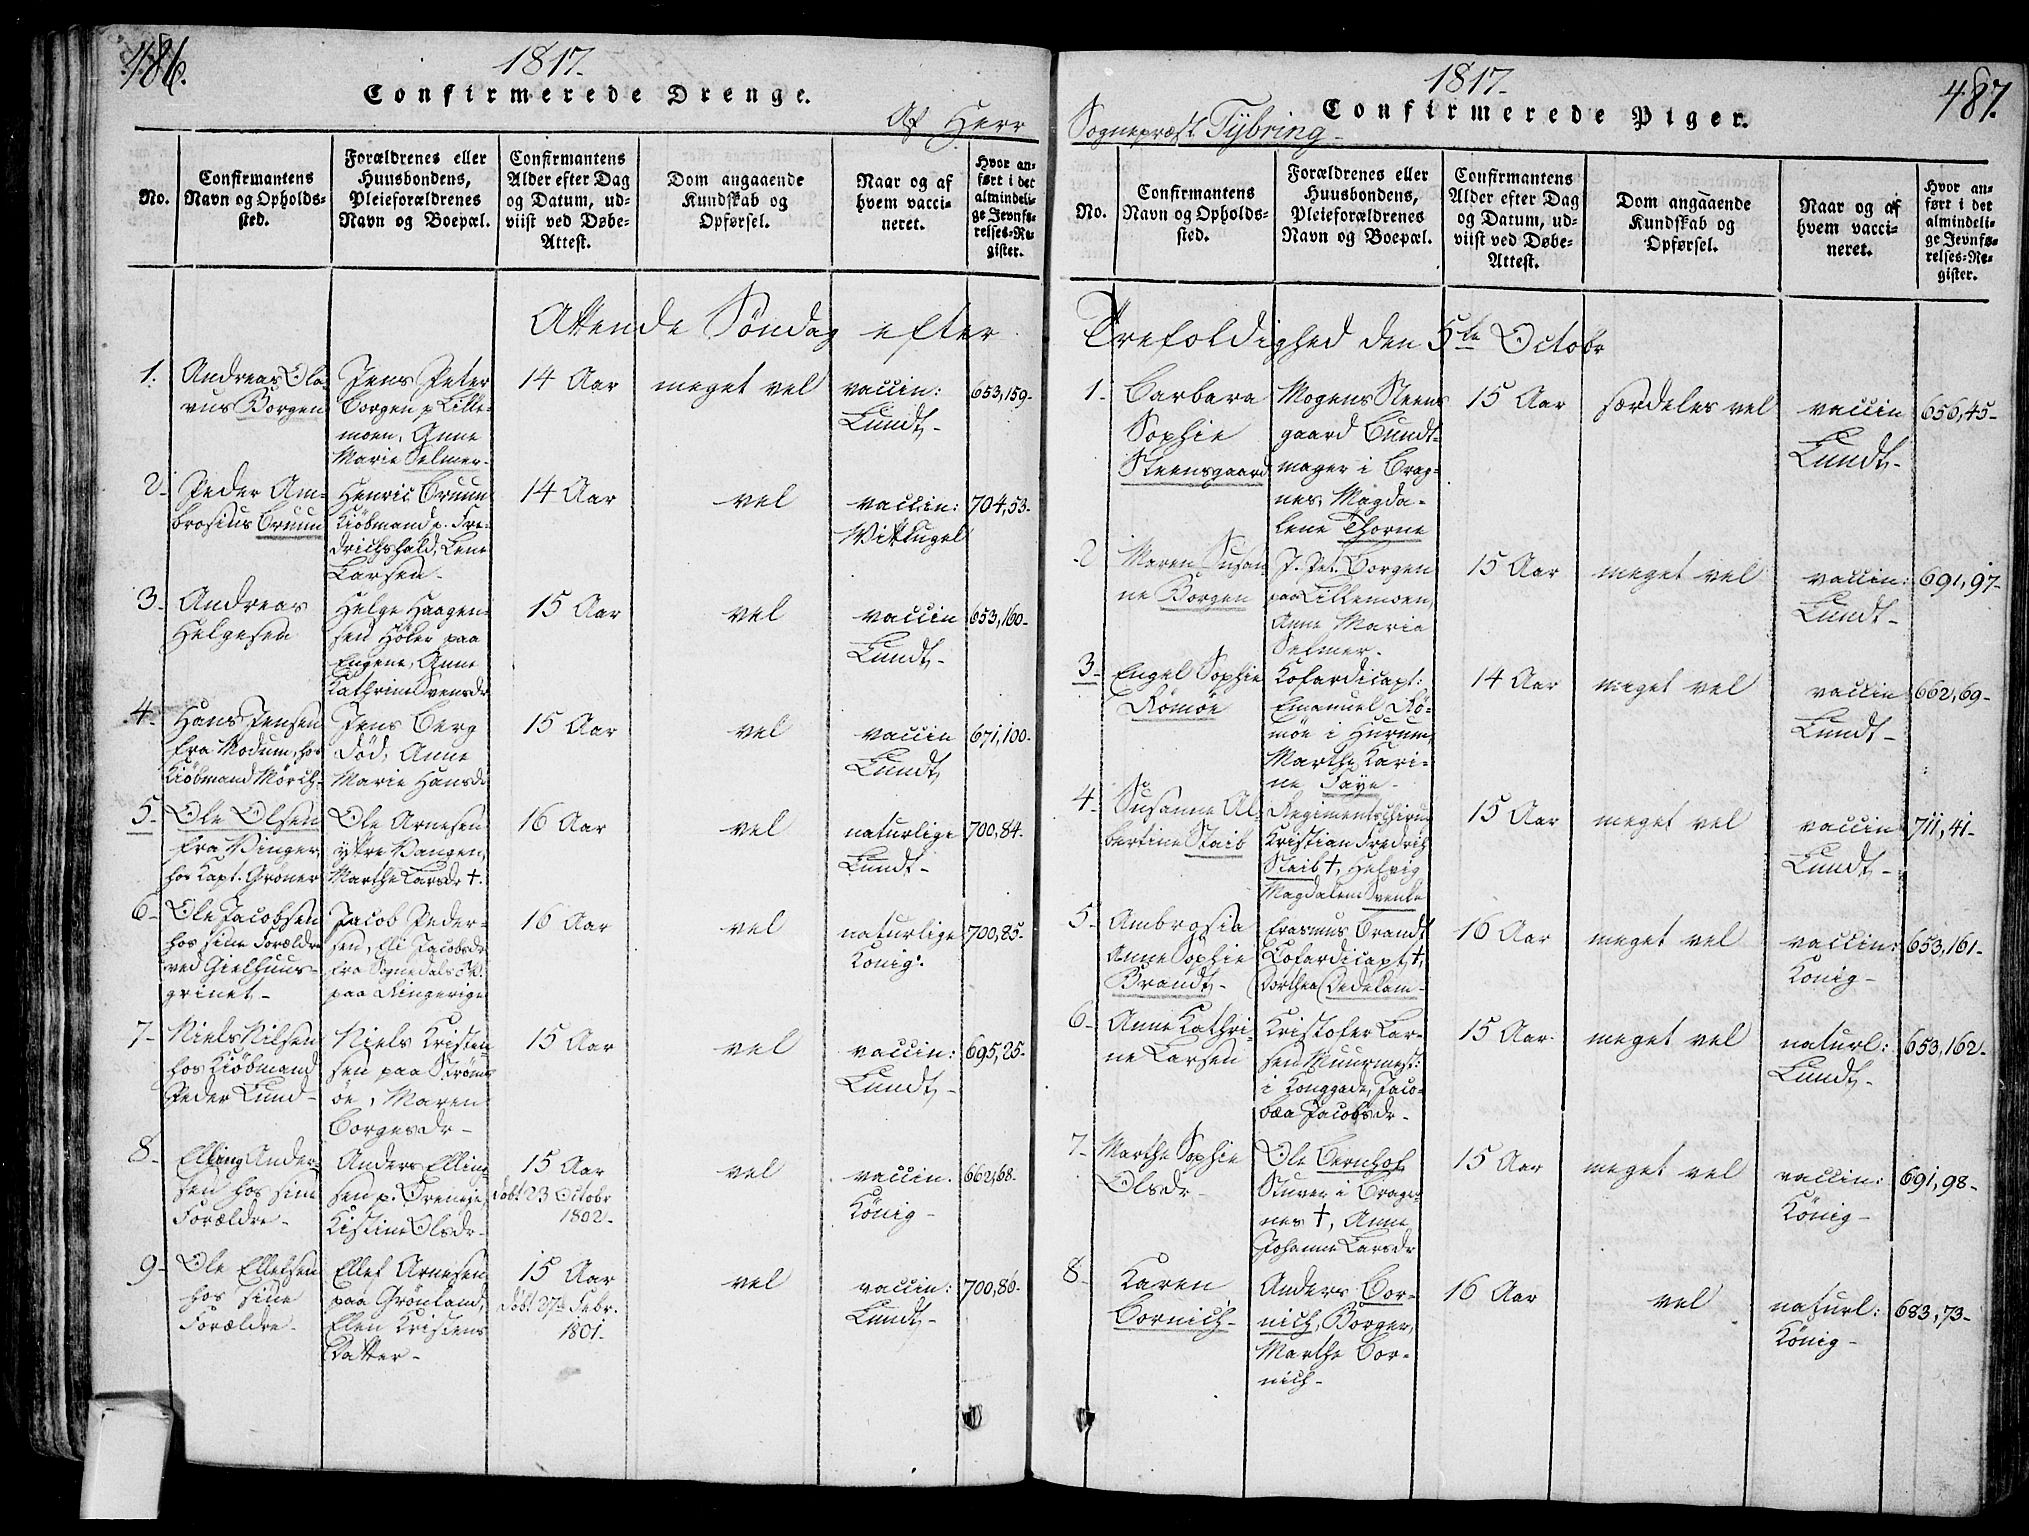 486.
1817.
Confirmerede Drenge.
Af Herr
No.
Confirmantens
Navn og Opholds-
sted.
Forældrenes eller
Huusbondens,
Pleieforældrenes
Navn og Boepæl.
Confirmantens
Alder efter Dag
og Datum, ud-
viist ved Døbe-
Attest.
Dom angaaende
Kundskab og
Opførsel.
Naar og af
hvem vacci-
neret.
Hvor an-
ført i det
almindeli-
ge Jevnfø-
relses-Re-
gister.
Attende Søndag efter
1.
Andreas Ola-
vus Borgen
Jens Peter
Borgen p Lille-
moen, Anne
Marie Selmer-
14 Aar
meget vel
vaccin:
Lundt-
653,159-
2-
Peder Am-
brosius Bruun
Henric Bruun
Kiöbmand p. Fre-
drichshald, Lene
Larsen-
14 Aar
vel
vaccin:
Wittugel
704,53-
3-
Andreas
Helgesen
Helge Haagen-
sen Höker paa
Engene, Anne
Kathrine Svensdr
15 Aar
vel
vaccin
Lundt-
653,160-
4-
Hans Jensen
fra Modum, hos
Kiöbmand Mörch-
Jens Berg
död, Anne
Marie Hansdr
15 Aar
vel
vaccin
Lundt
671,100-
5-
Ole Olsen
fra Vinger,
hos Kapt. Gröner
Ole Arnesen
ytre Vangen,
Marthe Larsdr †.
16 Aar
vel
naturlige
Lundt-
700,84-
6-
Ole Jacobsen
hos sine Forældre
ved Gielhuus-
grinet-
Jacob Peder-
sen, Eli Jacobsdr
fra Sognedals
paa Ringerige
16 Aar
vel
naturlige
König.
700,85-
7-
Niels Nilsen
hos Kiöbmand
Peder Lund-
Niels Kristen-
sen paa Ströms-
öe, Maren
Borgesdr-
15 Aar
vel
vaccin:
Lundt-
695,25-
8-
Elling Ander-
sen hos sine
Forældre-
Anders Elling
sen p.
Kistine Olsdr-
15 Aar
döbt 23 Octobr
1802-
vel
vaccin.
König-
662,68-
9-
Ole Ellefsen
hos sine
Forældre-
Ellef Arnesen
paa Grönland,
Ellen Kristens
Datter-
15 Aar
döbt 27de Febr.
1801-
vel
vaccin:
Lundt-
700,86-
1817-
487.
Confirmerede Piger.
Sognepræst Tybring-
No.
Confirmantens
Navn og Opholds-
sted.
Forældrenes eller
Huusbondens,
Pleieforældrenes
Navn og Boepæl.
Confirmantens
Alder efter Dag
og Datum, ud-
viist ved Døbe-
Attest.
Dom angaaende
Kundskab og
Opførsel.
Naar og af
hvem vacci-
neret.
Hvor an-
ført i det
almindeli-
ge Jevnfø-
relses-Re-
gister.
Trefoldighed den 5te Octobr
1-
Barbara
Sophie
Steensgaard
Mogens Steens
gaard Bundt-
mager i Brag-
nes, Magda-
lene Thorne
15 Aar
særdeles vel
vaccin
Lundt-
656,45-
2
Maren Susan-
ne Borgen
J. Pet. Borgen
paa Lillemoen,
Anne Marie
Selmer-
15 Aar
meget vel
vaccin:
Lundt-
691,97-
3-
Engel Sophie
Römöe
Kofardicapt:
Emanuel Rö-
möe i Hurum,
Marthe Kari-
ne Faye-
14 Aar
meget vel
vaccin
Lundt-
662,69-
4-
Susanne Al-
bertine Staib
Regimentschirur
Kristian Fredrich
Staib †, Helvig
Magdalena Svenke
15 Aar
meget vel
vaccin
Lundt-
711,41-
5-
Ambrosia
Anne Sophie
Brandt-
Erasmus Brandt
Cofardicapt †,
Dorthea Dedekam-
16 Aar
meget vel
vaccin:
König-
653,161-
6-
Anne Kathri-
ne Larsen
Kristofer Lar-
sen Muurmest:
i Konggade, Jaco-
bæa Jacobsdr-
15 Aar-
meget vel
naturl:
Lundt-
653,162-
7-
Marthe Sophie
Olsdr-
Ole Bernhof
Stuver i Brager-
nes †, Anne
Johanne Larsdr
15 Aar
meget vel
vaccin:
König-
691,98-
8-
Karen
Bornich-
Anders Bor-
nich, Borger,
Marthe Bor-
nich-
16 Aar
vel
naturl:
König-
683,73-